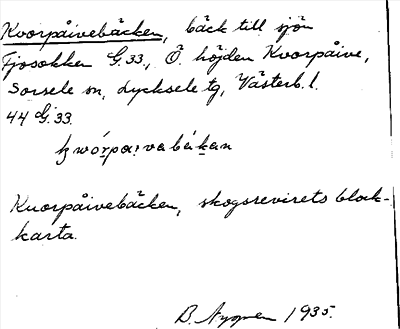 Kvorpåivebäcken, bäck till sjön
Fjosokken G.33., Ö. höjden Kvorpåive,
Sorsele sn, Lycksele tg, Västerb. l.
44 G 33
kwórpa:vabékan
Kuorpåivebäcken, skogsrevirets block-
karta.
B. Nygren 1935.